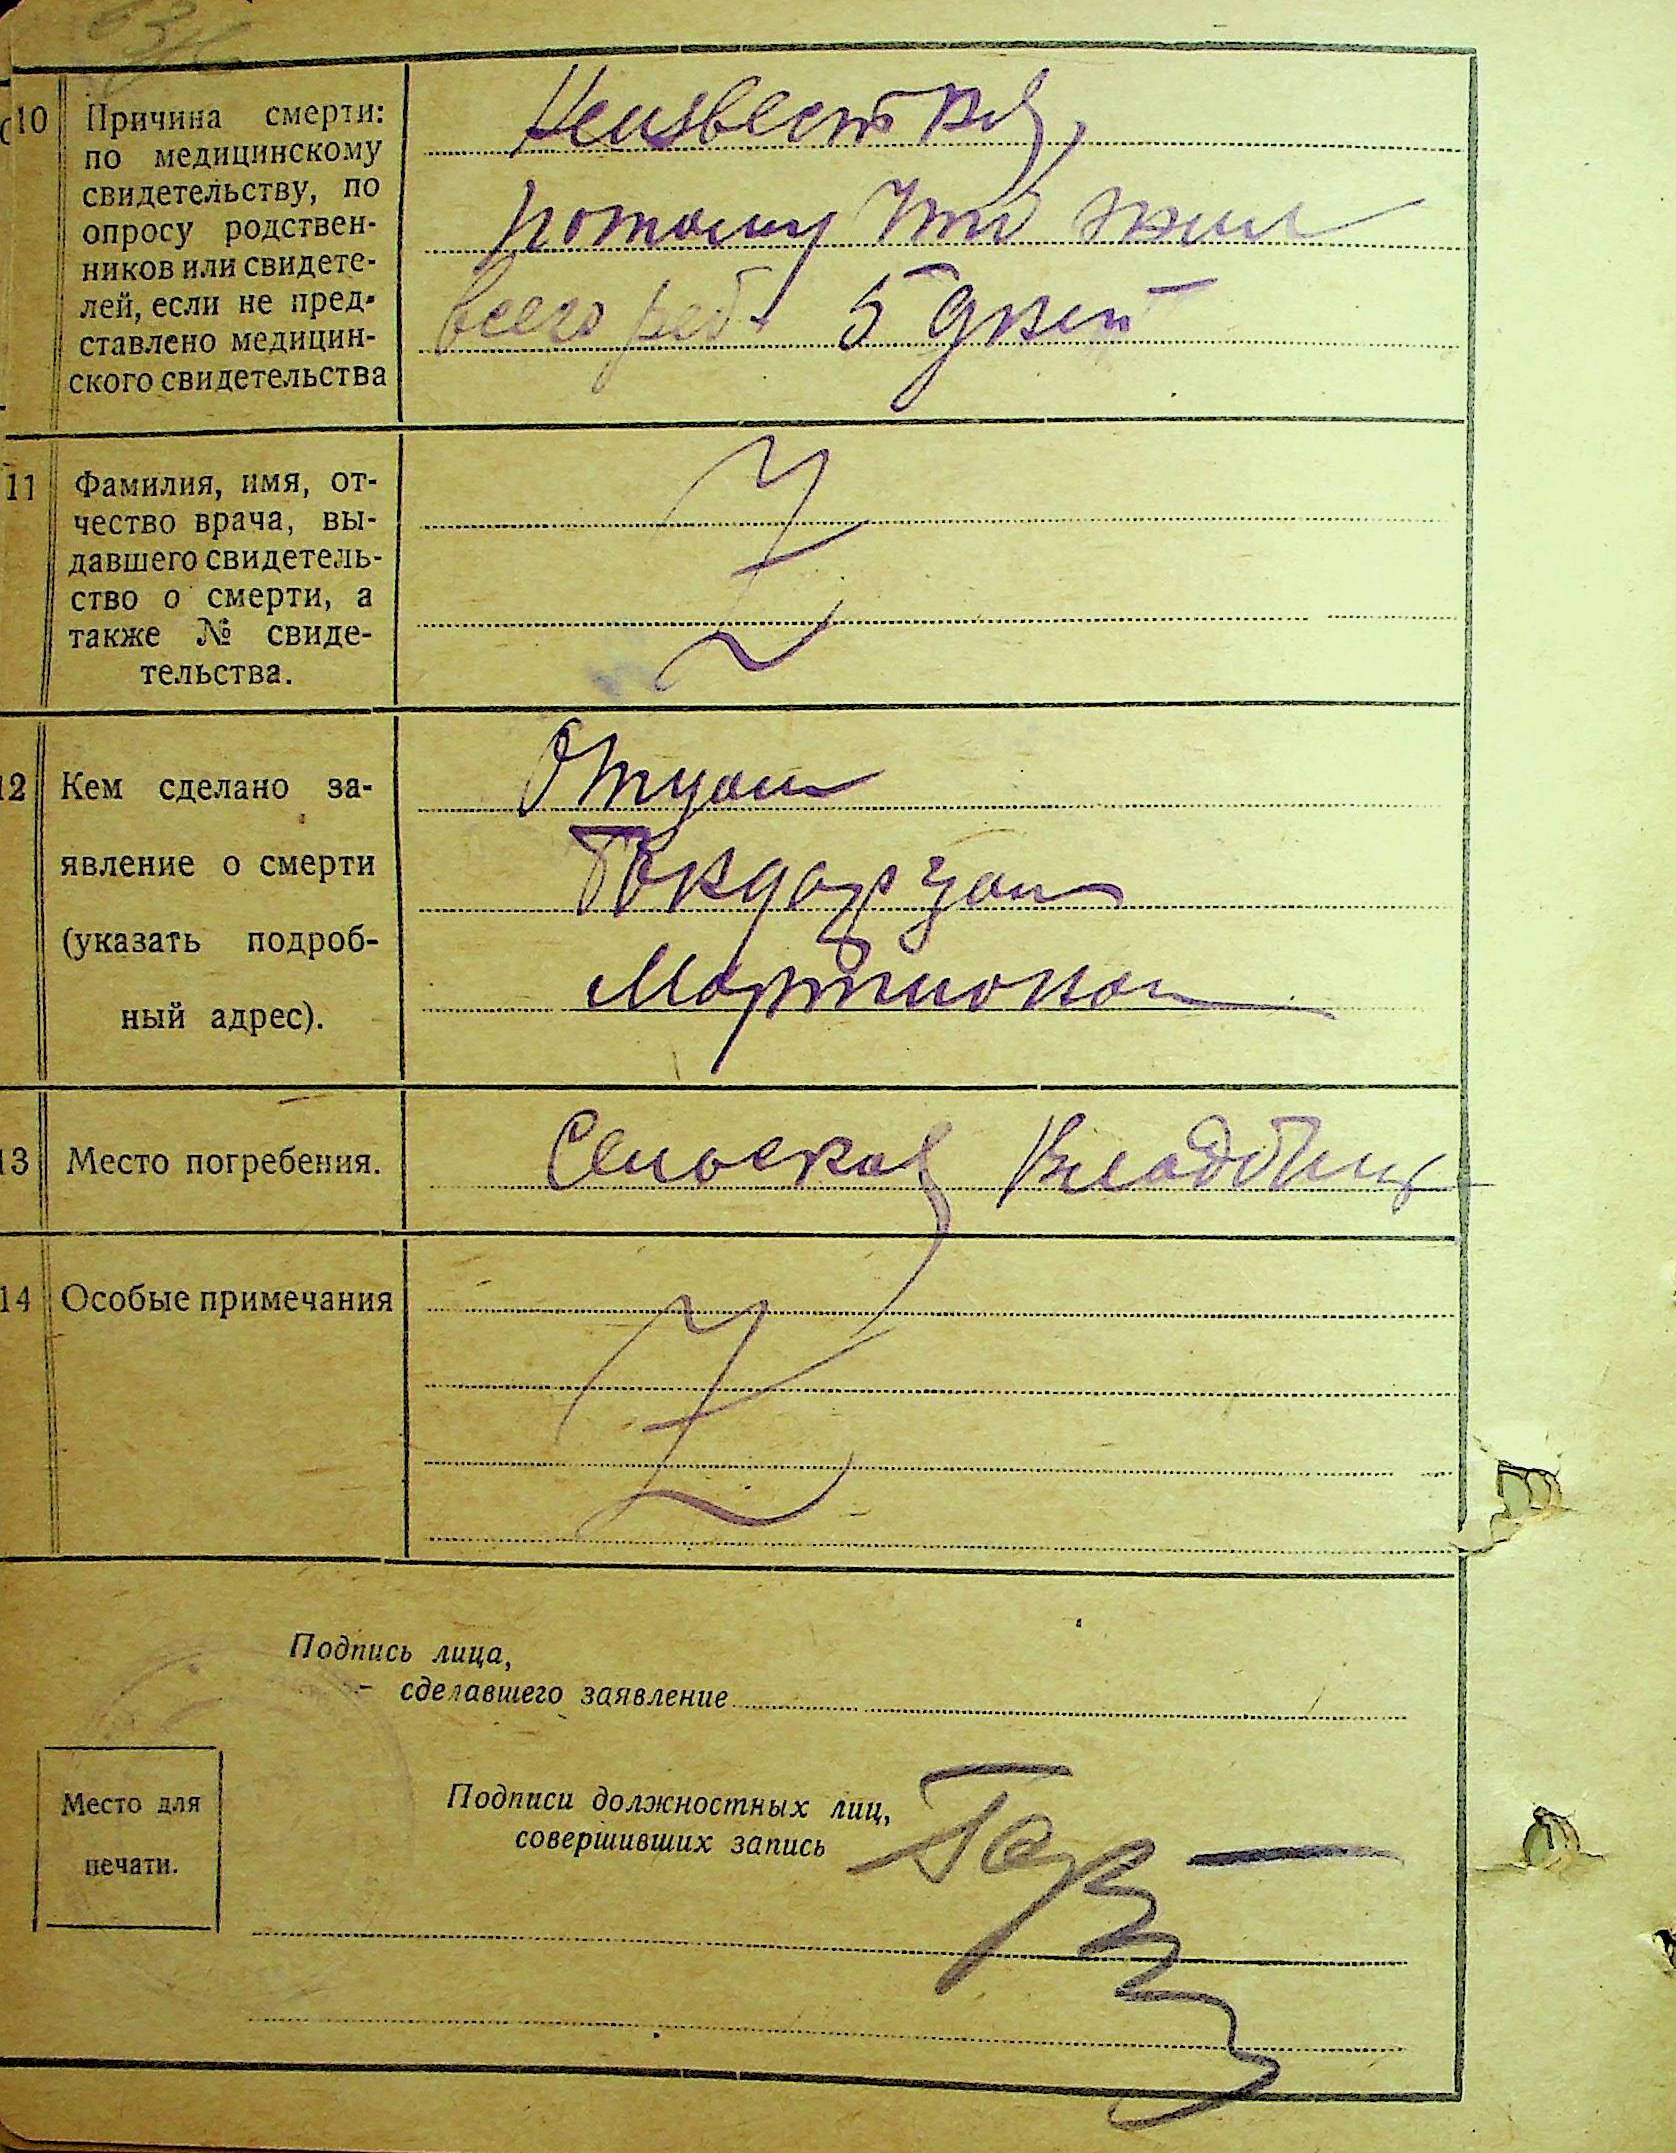 10 Причина смерти:
по медицинскому
свидетельству, по
опросу родствен-
ников или свидете-
лей, если не пред-
ставлено медицин-
ского свидетельства
Неизвестная,
потому что жил
всего реб. 5 дней
11 Фамилия, имя, от-
чество врача, вы-
давшего свидетель-
ство о смерти, а
также № свиде-
тельства.
12 Кем сделано за-
явление о смерти
(указать подроб-
ный адрес).
Отцом
13 Место погребения.
Сельская Кладбище
14 Особые примечания
Подпись лица,
сделавшего заявление
Место для
печати.
Подписи должностных лиц,
совершивших запись